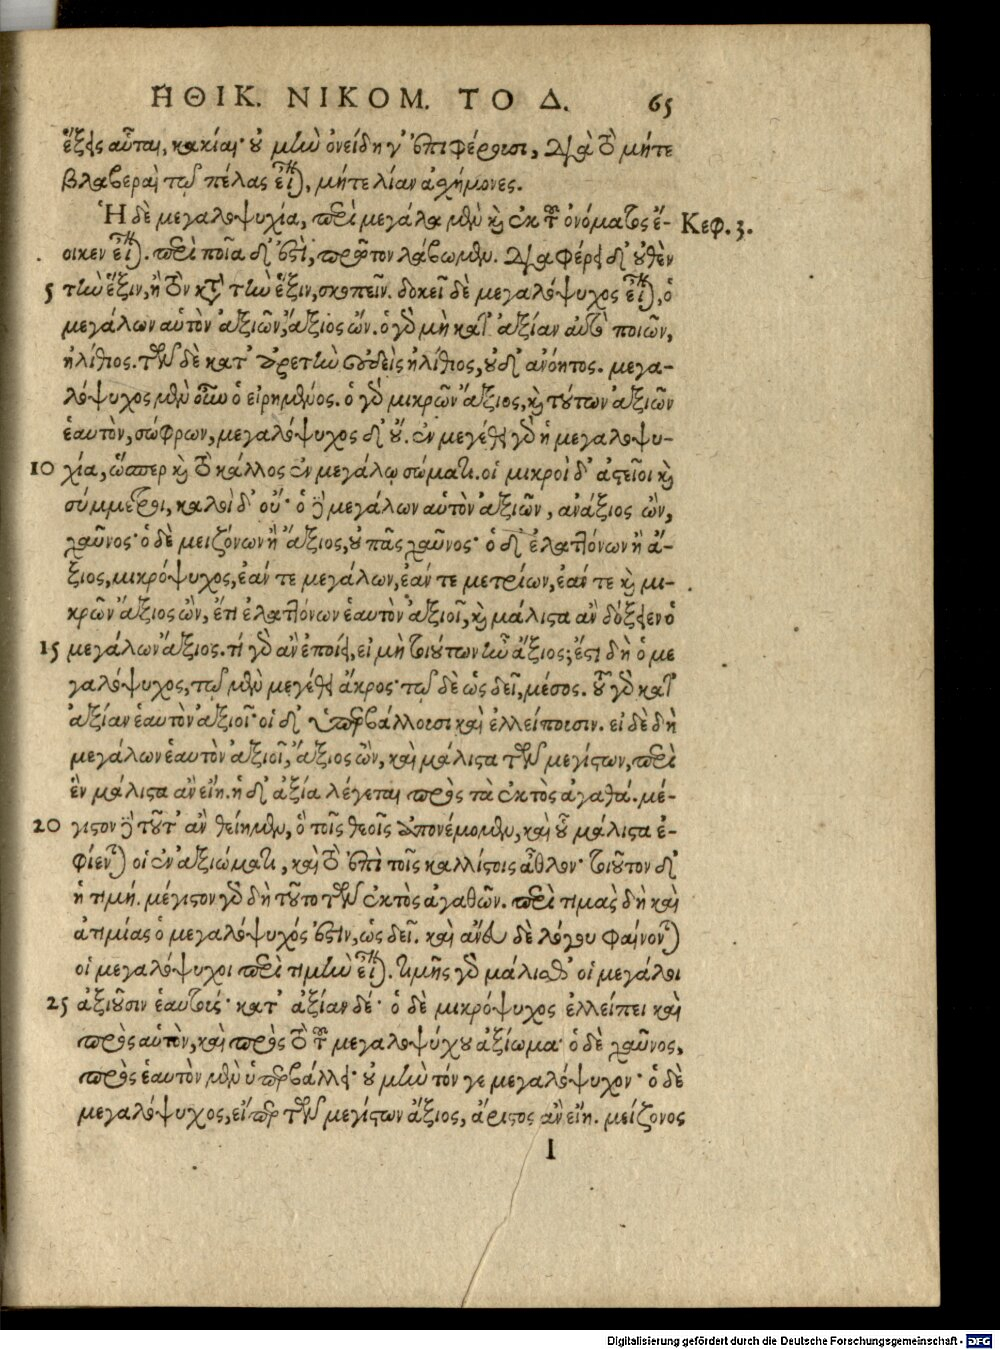 ΗΘΙΚ. ΝΙΚΟΜ. ΤΟ Δ. 65
ἕξεις αὗται, κακίαι· οὐ μὴν ὀνείδη γ' ἐπιφέρουσι, διὰ τὸ μήτε
βλαβεραὶ τῷ πέλας εἶναι, μήτε λίαν ἀσχήμονες.
Ἡ δὲ μεγαλοψυχία, περὶ μεγάλα μὲν καὶ ἐκ τοῦ ὀνόματος ἔ- Κεφ. 3.
οικεν εἶναι. περὶ ποῖα δ' ἐστὶ, πρῶτον λάβωμεν. διαφέρει δ' οὐθὲν
5 τὴν ἕξιν, ἢ τὸν κατὰ τὴν ἕξιν, σκοπεῖν. δοκεῖ δὲ μεγαλόψυχος εἶναι, ὁ
μεγάλων αὑτὸν ἀξιῶν, ἄξιος ὤν. ὁ γὰρ μὴ κατ' ἀξίαν αὐτὸ ποιῶν,
ἠλίθιος. τῶν δὲ κατ' ἀρετὴν οὐδεὶς ἠλίθιος, οὐδ' ἀνόητος. μεγα-
λόψυχος μὲν οὖν ὁ εἰρημένος. ὁ γὰρ μικρῶν ἄξιος, καὶ τούτων ἀξιῶν
ἑαυτὸν, σώφρων, μεγαλόψυχος δ' οὔ. ἐν μεγέθει γὰρ ἡ μεγαλοψυ-
10 χία, ὥσπερ καὶ τὸ κάλλος ἐν μεγάλῳ σώματι. οἱ μικροὶ δ' ἀστεῖοι καὶ
σύμμετροι, καλοὶ δ' οὔ· ὁ δὲ μεγάλων αὑτὸν ἀξιῶν, ἀνάξιος ὢν,
χαῦνος· ὁ δὲ μειζόνων ἢ ἄξιος, οὐ πᾶς χαῦνος· ὁ δ' ἐλαττόνων ἢ ἄ-
ξιος, μικρόψυχος, ἐάν τε μεγάλων, ἐάν τε μετρίων, ἐάν τε καὶ μι-
κρῶν ἄξιος ὢν, ἔτι ἐλαττόνων ἑαυτὸν ἀξιοῖ, καὶ μάλιστα ἂν δόξειεν ὁ
15 μεγάλων ἄξιος. τί γὰρ ἂν ἐποίει, εἰ μὴ τοιούτων ἦν ἄξιος; ἔστι δὴ ὁ με
γαλόψυχος, τῷ μὲν μεγέθει ἄκρος· τῷ δὲ ὡς δεῖ, μέσος. τοῦ γὰρ κατ'
ἀξίαν ἑαυτὸν ἀξιοῖ· οἱ δ' ὑπερβάλλουσι καὶ ἐλλείπουσιν. εἰ δὲ δὴ
μεγάλων ἑαυτὸν ἀξιοῖ, ἄξιος ὢν, καὶ μάλιστα τῶν μεγίστων, περὶ
ἓν μάλιστα ἂν εἴη. ἡ δ' ἀξία λέγεται πρὸς τὰ ἐκτὸς ἀγαθά. μέ-
20 γιστον δὲ τοῦτ' ἂν θείημεν, ὃ τοῖς θεοῖς ἀπονέμομεν, καὶ οὗ μάλιστα ἐ-
φίενται οἱ ἐν ἀξιώματι, καὶ τὸ ἐπὶ τοῖς καλλίστοις ἆθλον· τοιοῦτον δ'
ἡ τιμή. μέγιστον γὰρ δὴ τοῦτο τῶν ἐκτὸς ἀγαθῶν. περὶ τιμὰς δὴ καὶ
ἀτιμίας ὁ μεγαλόψυχός ἐστιν, ὡς δεῖ. καὶ ἄνευ δὲ λόγου φαίνονται
οἱ μεγαλόψυχοι περὶ τιμὴν εἶναι. τιμῆς γὰρ μάλισθ' οἱ μεγάλοι
25 ἀξιοῦσιν ἑαυτούς· κατ' ἀξίαν δέ· ὁ δὲ μικρόψυχος ἐλλείπει καὶ
πρὸς αὑτὸν, καὶ πρὸς τὸ τοῦ μεγαλοψύχου ἀξίωμα· ὁ δὲ χαῦνος,
πρὸς ἑαυτὸν μὲν ὑπερβάλλει· οὐ μὴν τόν γε μεγαλόψυχον· ὁ δὲ
μεγαλόψυχος, εἴπερ τῶν μεγίστων ἄξιος, ἄριστος ἂν εἴη. μείζονος
I
Digitalisierung gefördert durch die Deutsche Forschungsgemeinschaft - DFG